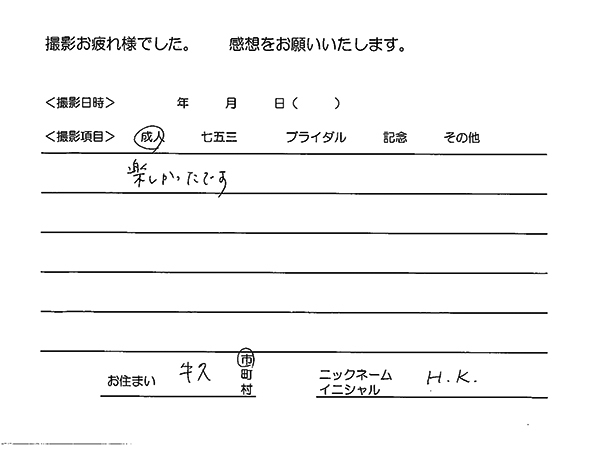 撮影お疲れ様でした。　感想をお願いいたします。
＜撮影日時＞　年　月　日（　）
＜撮影項目＞　成人　七五三　ブライダル　記念　その他
楽しかったです
お住まい　牛久　市　町　村
ニックネーム　イニシャル　H.K.